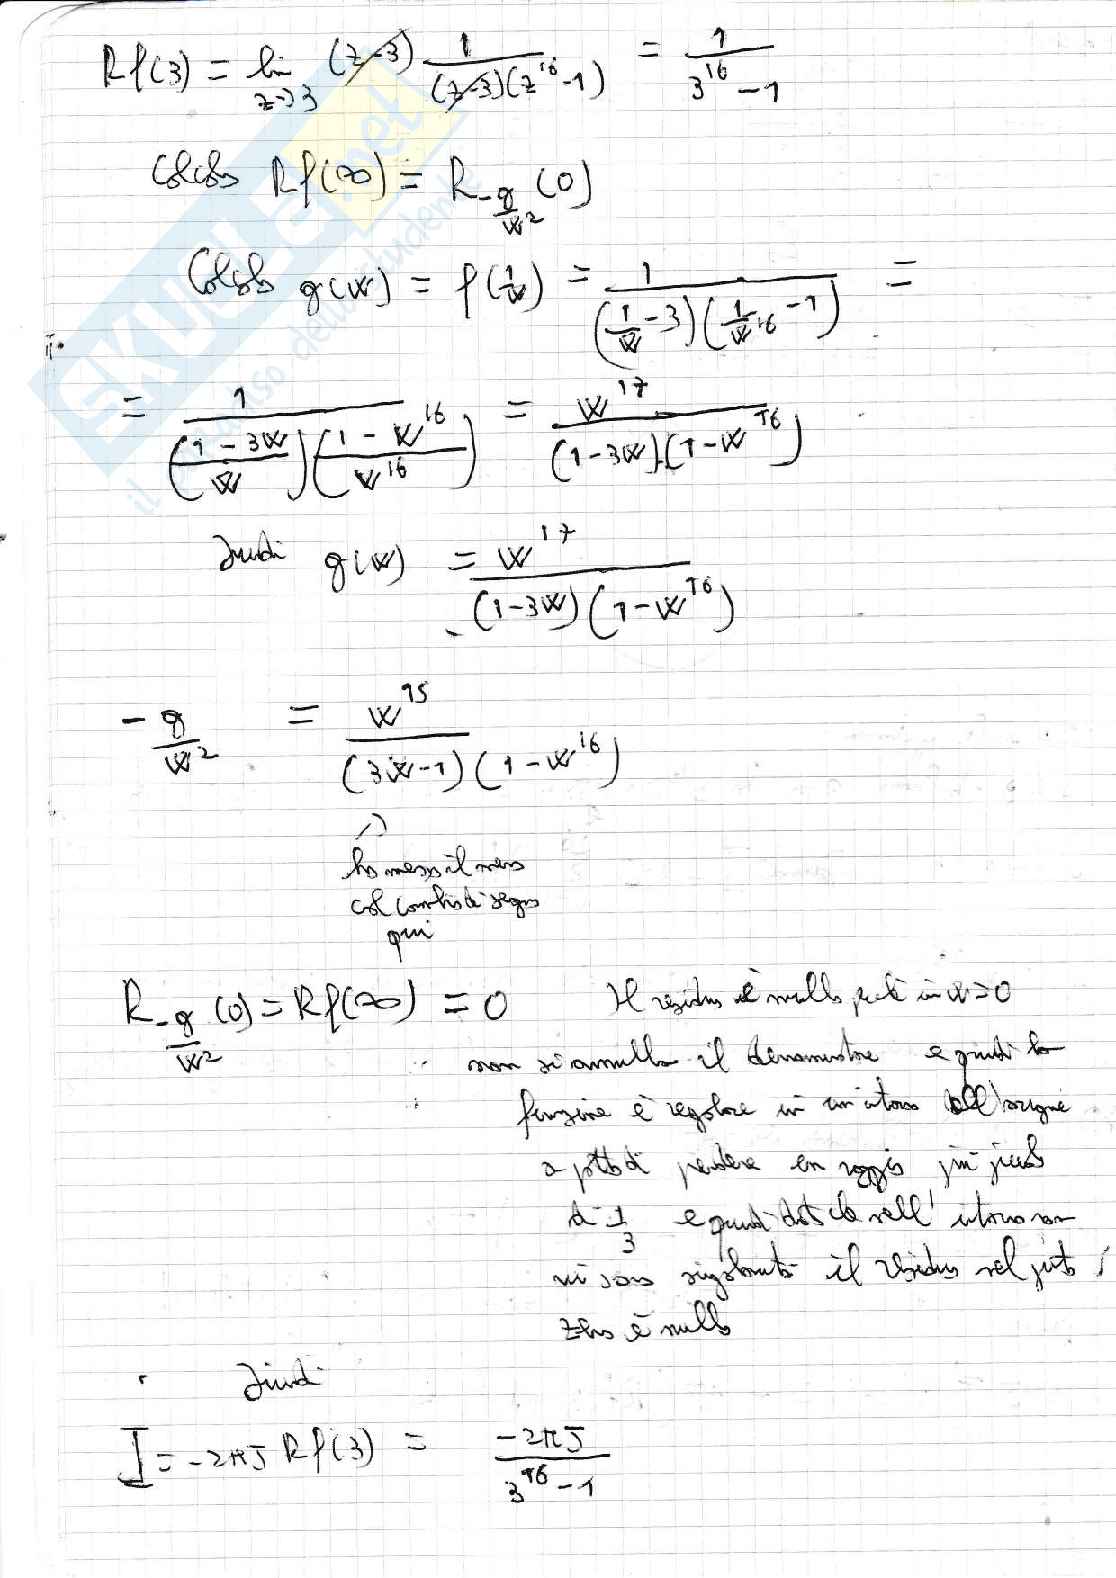 Rf(3) = lim z→3 (z-3) 1/((z-3)(z^16-1)) = 1/(3^16 - 1)
Calcolo Rf(∞) = R_{-g/w^2} (0)
Calcolo g(w) = f(1/w) = 1/((1/w - 3)(1/w^16 - 1)) =
= 1/(((1-3w)/w)((1-w^16)/w^16)) = w^17/((1-3w)(1-w^16))
Quindi g(w) = w^17/((1-3w)(1-w^16))
-g/w^2 = w^15/((3w-1)(1-w^16))
ho messo il meno
col cambio di segno
qui
R_{-g/w^2} (0) = Rf(∞) = 0 Il residuo è nullo perché in w=0
non si annulla il denominatore e quindi la
funzione è regolare in un intorno dell'origine
a patto di prendere un raggio più piccolo
di 1/3 e quindi dato che nell'intorno non
vi sono singolarità il residuo nel punto
zero è nullo
Quindi
I = -2πJ Rf(3) = -2πJ/(3^16 - 1)
SKUOLA.net
il paradiso dello studente